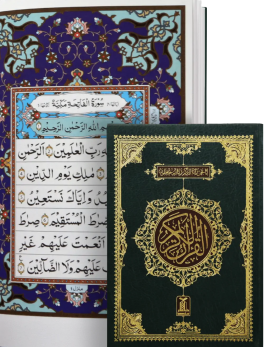 سُورَةُ الْفَاتِحَةِ مَكِّيَّةٌ
اللّٰهِ الرَّحْمٰنِ الرَّحِيْمِ
رَبِّ الْعٰلَمِيْنَ ۙ الرَّحْمٰنِ
مٰلِكِ يَوْمِ الدِّيْنِ
وَاِيَّاكَ نَسْتَعِيْنُ
الصِّرَاطَ الْمُسْتَقِيْمَ ۙ صِرَاطَ
اَنْعَمْتَ عَلَيْهِمْ غَيْرِ
عَلَيْهِمْ وَلَا الضَّآلِّيْنَ
القرآن الكريم